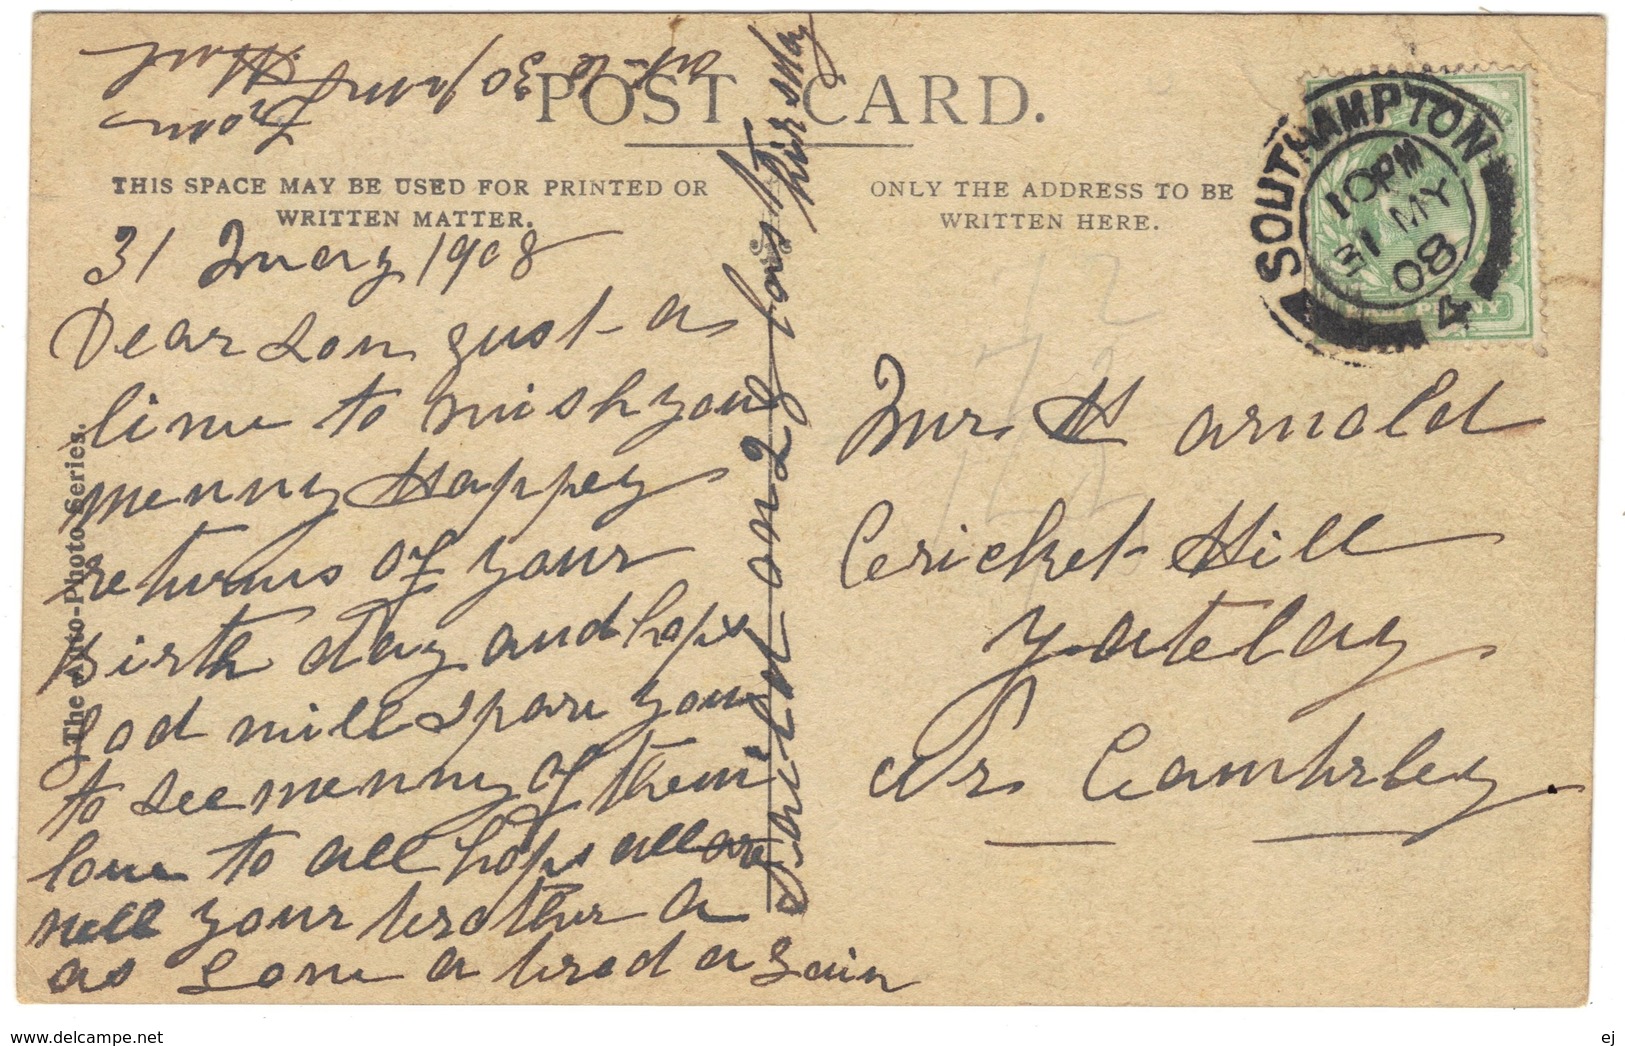 POST CARD.
THIS SPACE MAY BE USED FOR PRINTED OR
WRITTEN MATTER.
ONLY THE ADDRESS TO BE
WRITTEN HERE.
The Auto-Photo Series.
SOUTHAMPTON
10 PM
31 MY
08
4
31 May 1908
Dear Son Just a
line to wish you
menny Happey
returns of your
Birth day and hops
God will spare you
to see menny of them
love to all hops all are
well your brother A
as Gone a brod a Gain
Sailed on 29 for
thirsday
From
Mr H Arnold
Cricket Hill
Yatelay
Nr Camberley.
www.delcampe.net
ej